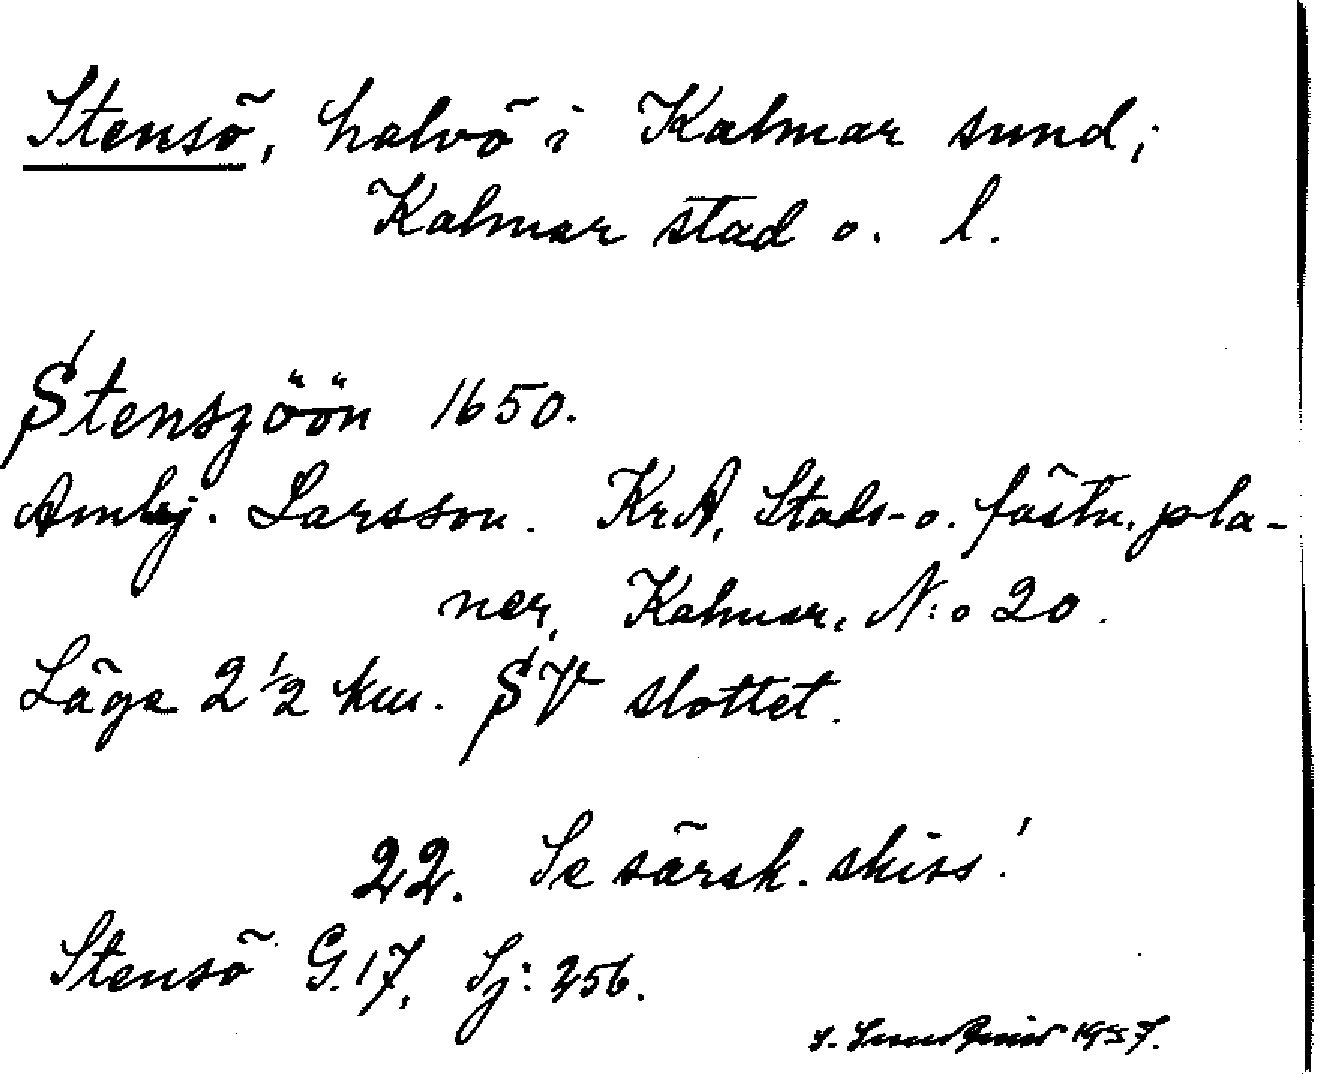 Stensö, halvö i Kalmar sund;
Kalmar stad o. l.
Stenszöön 1650.
Larsson. KrA, Stads- o. fästn. pla-
ner, Kalmar, N:o 20.
Läge 2 1/2 km. SV slottet.
22. Se särsk. skiss!
Stensö G.17, Sj: 256.
1957.